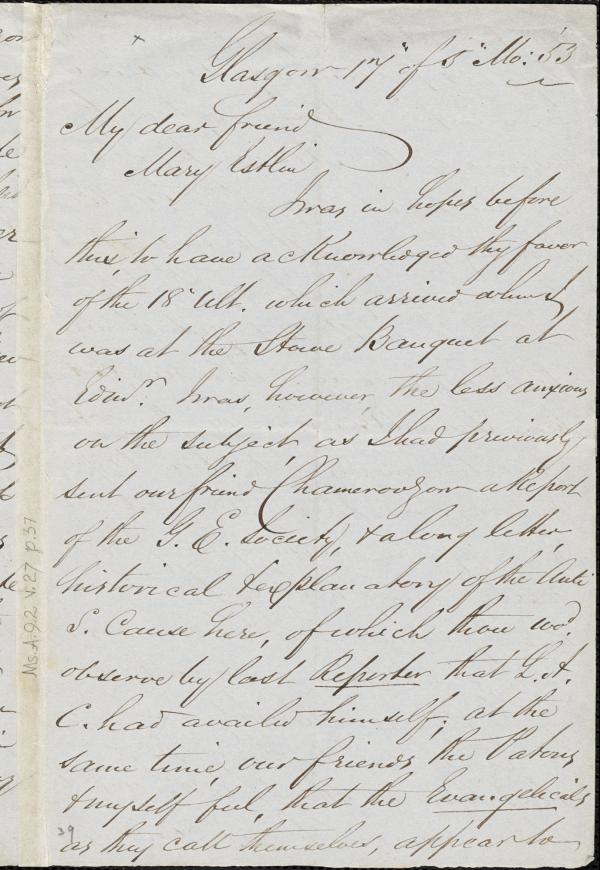 Glasgow 17" of 5" Mo: 53
My dear friend
Mary Estlin
I was in hopes before
this to have acknowledged thy favor
of the 18" Ult. which arrived when I
was at the Stowe Banquet at
Edinr. I was, however, the less anxious
on the subject, as I had previously
sent our friend Chamerovzow a Report
of the G. E. Society, & a long letter,
historical & explanatory of the Anti
S. Cause here, of which thou wod.
observe by last Reporter that L. A.
C. had availed himself; at the
same time, our friends the Patons
& myself feel, that the Evangelicals
as they call themselves, appear to
Ms.A.9.2 v.27 p.37
39